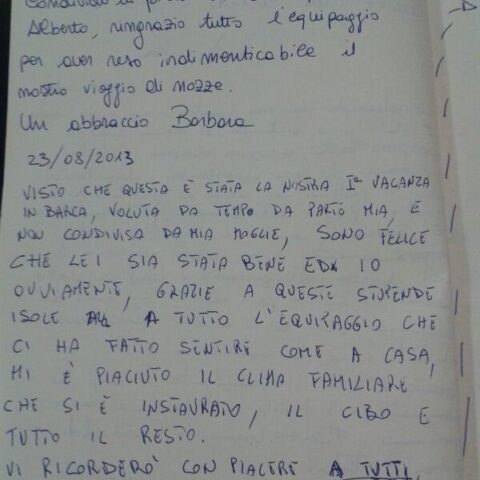 Condivido
Alberto, ringrazio tutto l'equipaggio
per aver reso indimenticabile il
nostro viaggio di nozze.
Un abbraccio Barbara
23/08/2013
VISTO CHE QUESTA È STATA LA NOSTRA Iª VACANZA
IN BARCA, VOLUTA DA TEMPO DA PARTE MIA, E
NON CONDIVISA DA MIA MOGLIE, SONO FELICE
CHE LEI SIA STATA BENE ED IO
OVVIAMENTE, GRAZIE A QUESTE STUPENDE
ISOLE A TUTTO L'EQUIPAGGIO CHE
CI HA FATTO SENTIRE COME A CASA,
MI È PIACIUTO IL CLIMA FAMILIARE
CHE SI È INSTAURATO, IL CIBO E
TUTTO IL RESTO.
VI RICORDERÒ CON PIACERE A TUTTI.